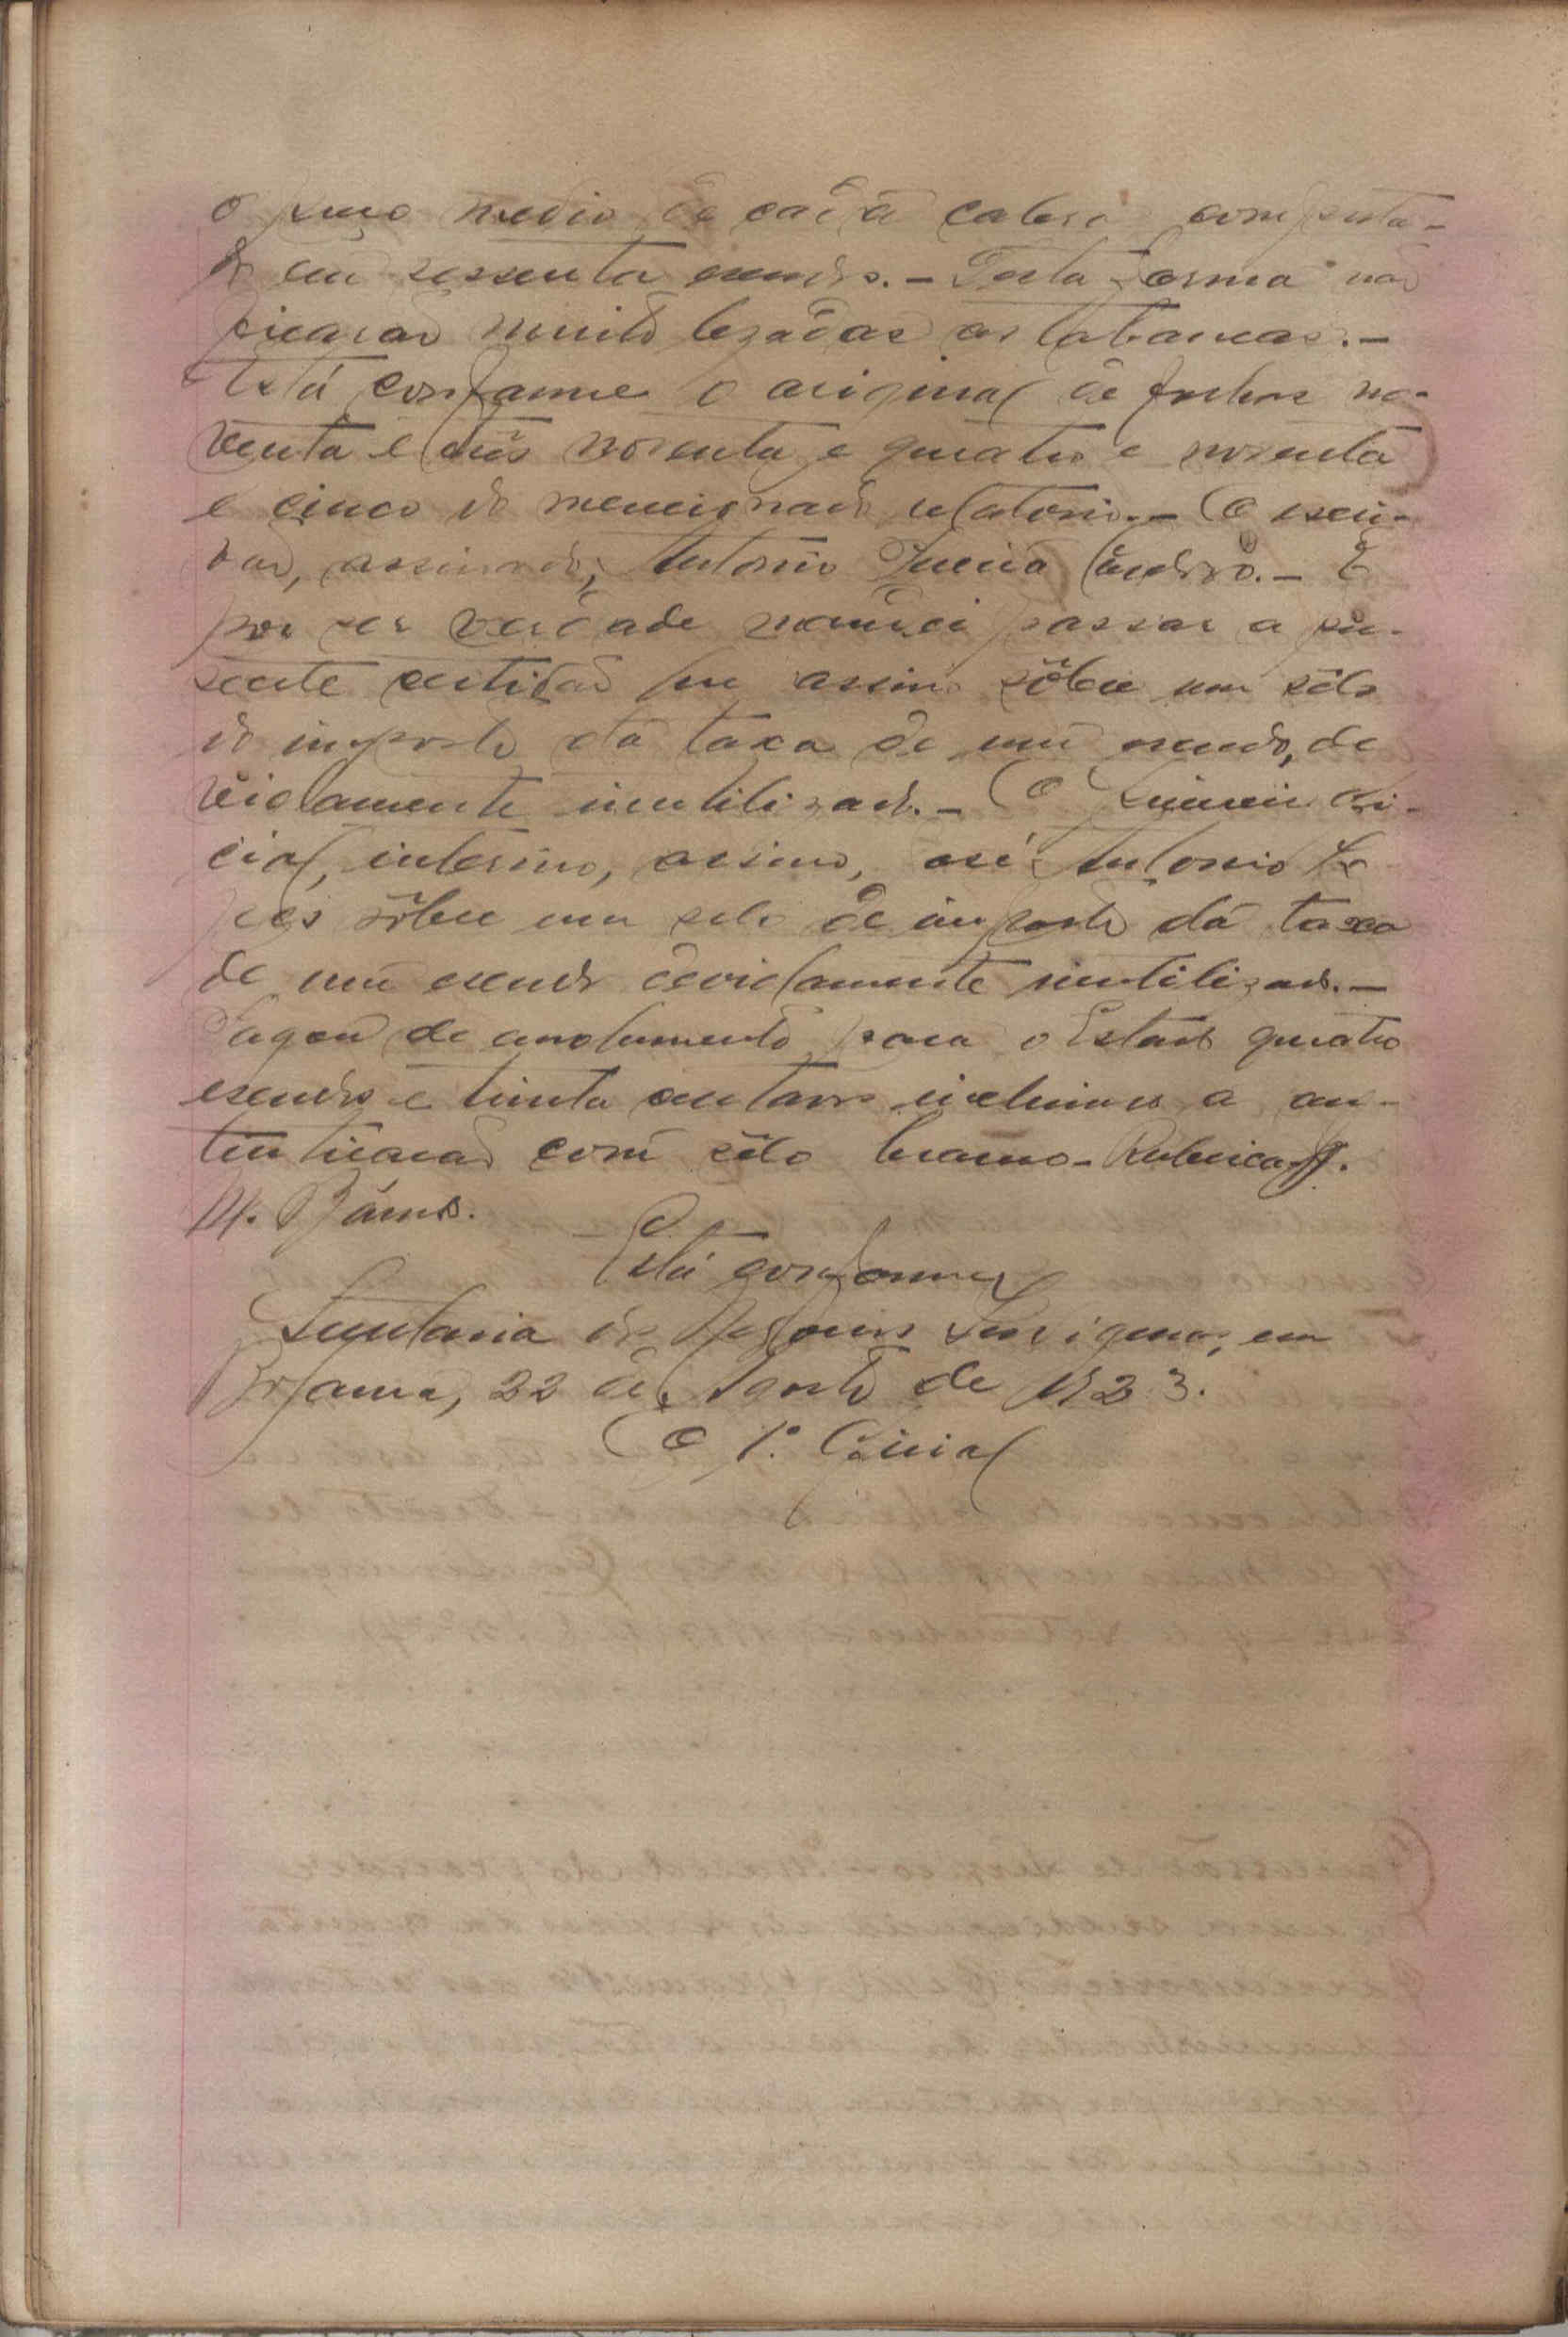 o preço medio de cada cabeça computa-
do em sessenta escudos. - Desta forma não
ficarão muito lezadas as tabancas. -
Está conforme o original de folhas no-
venta e três noventa e quatro e noventa
e cinco do mencionado relatorio. - O escri-
vão, assinado, Antonio Pereira Cardoso. - E
por ser verdade mandei passar a pre-
sente certidão que assino sôbre um sêlo
do imposto da taxa de um escudo, de
vidamente inutilizado. - O primeiro ofi-
cial, interino, assino, José Antonio Lo
pes sôbre um selo de imposto da taxa
de um escudo devidamente inutilizado. -
Pagou de emolumento para o Estado quatro
escudos e trinta centavos incluindo a au-
tenticação com sêlo branco - Rubricado.
M.
Está conforme
Secretaria dos Negocios Indigenas, em
Bolama, 22 de Agosto de 1923.
O 1º. Oficial